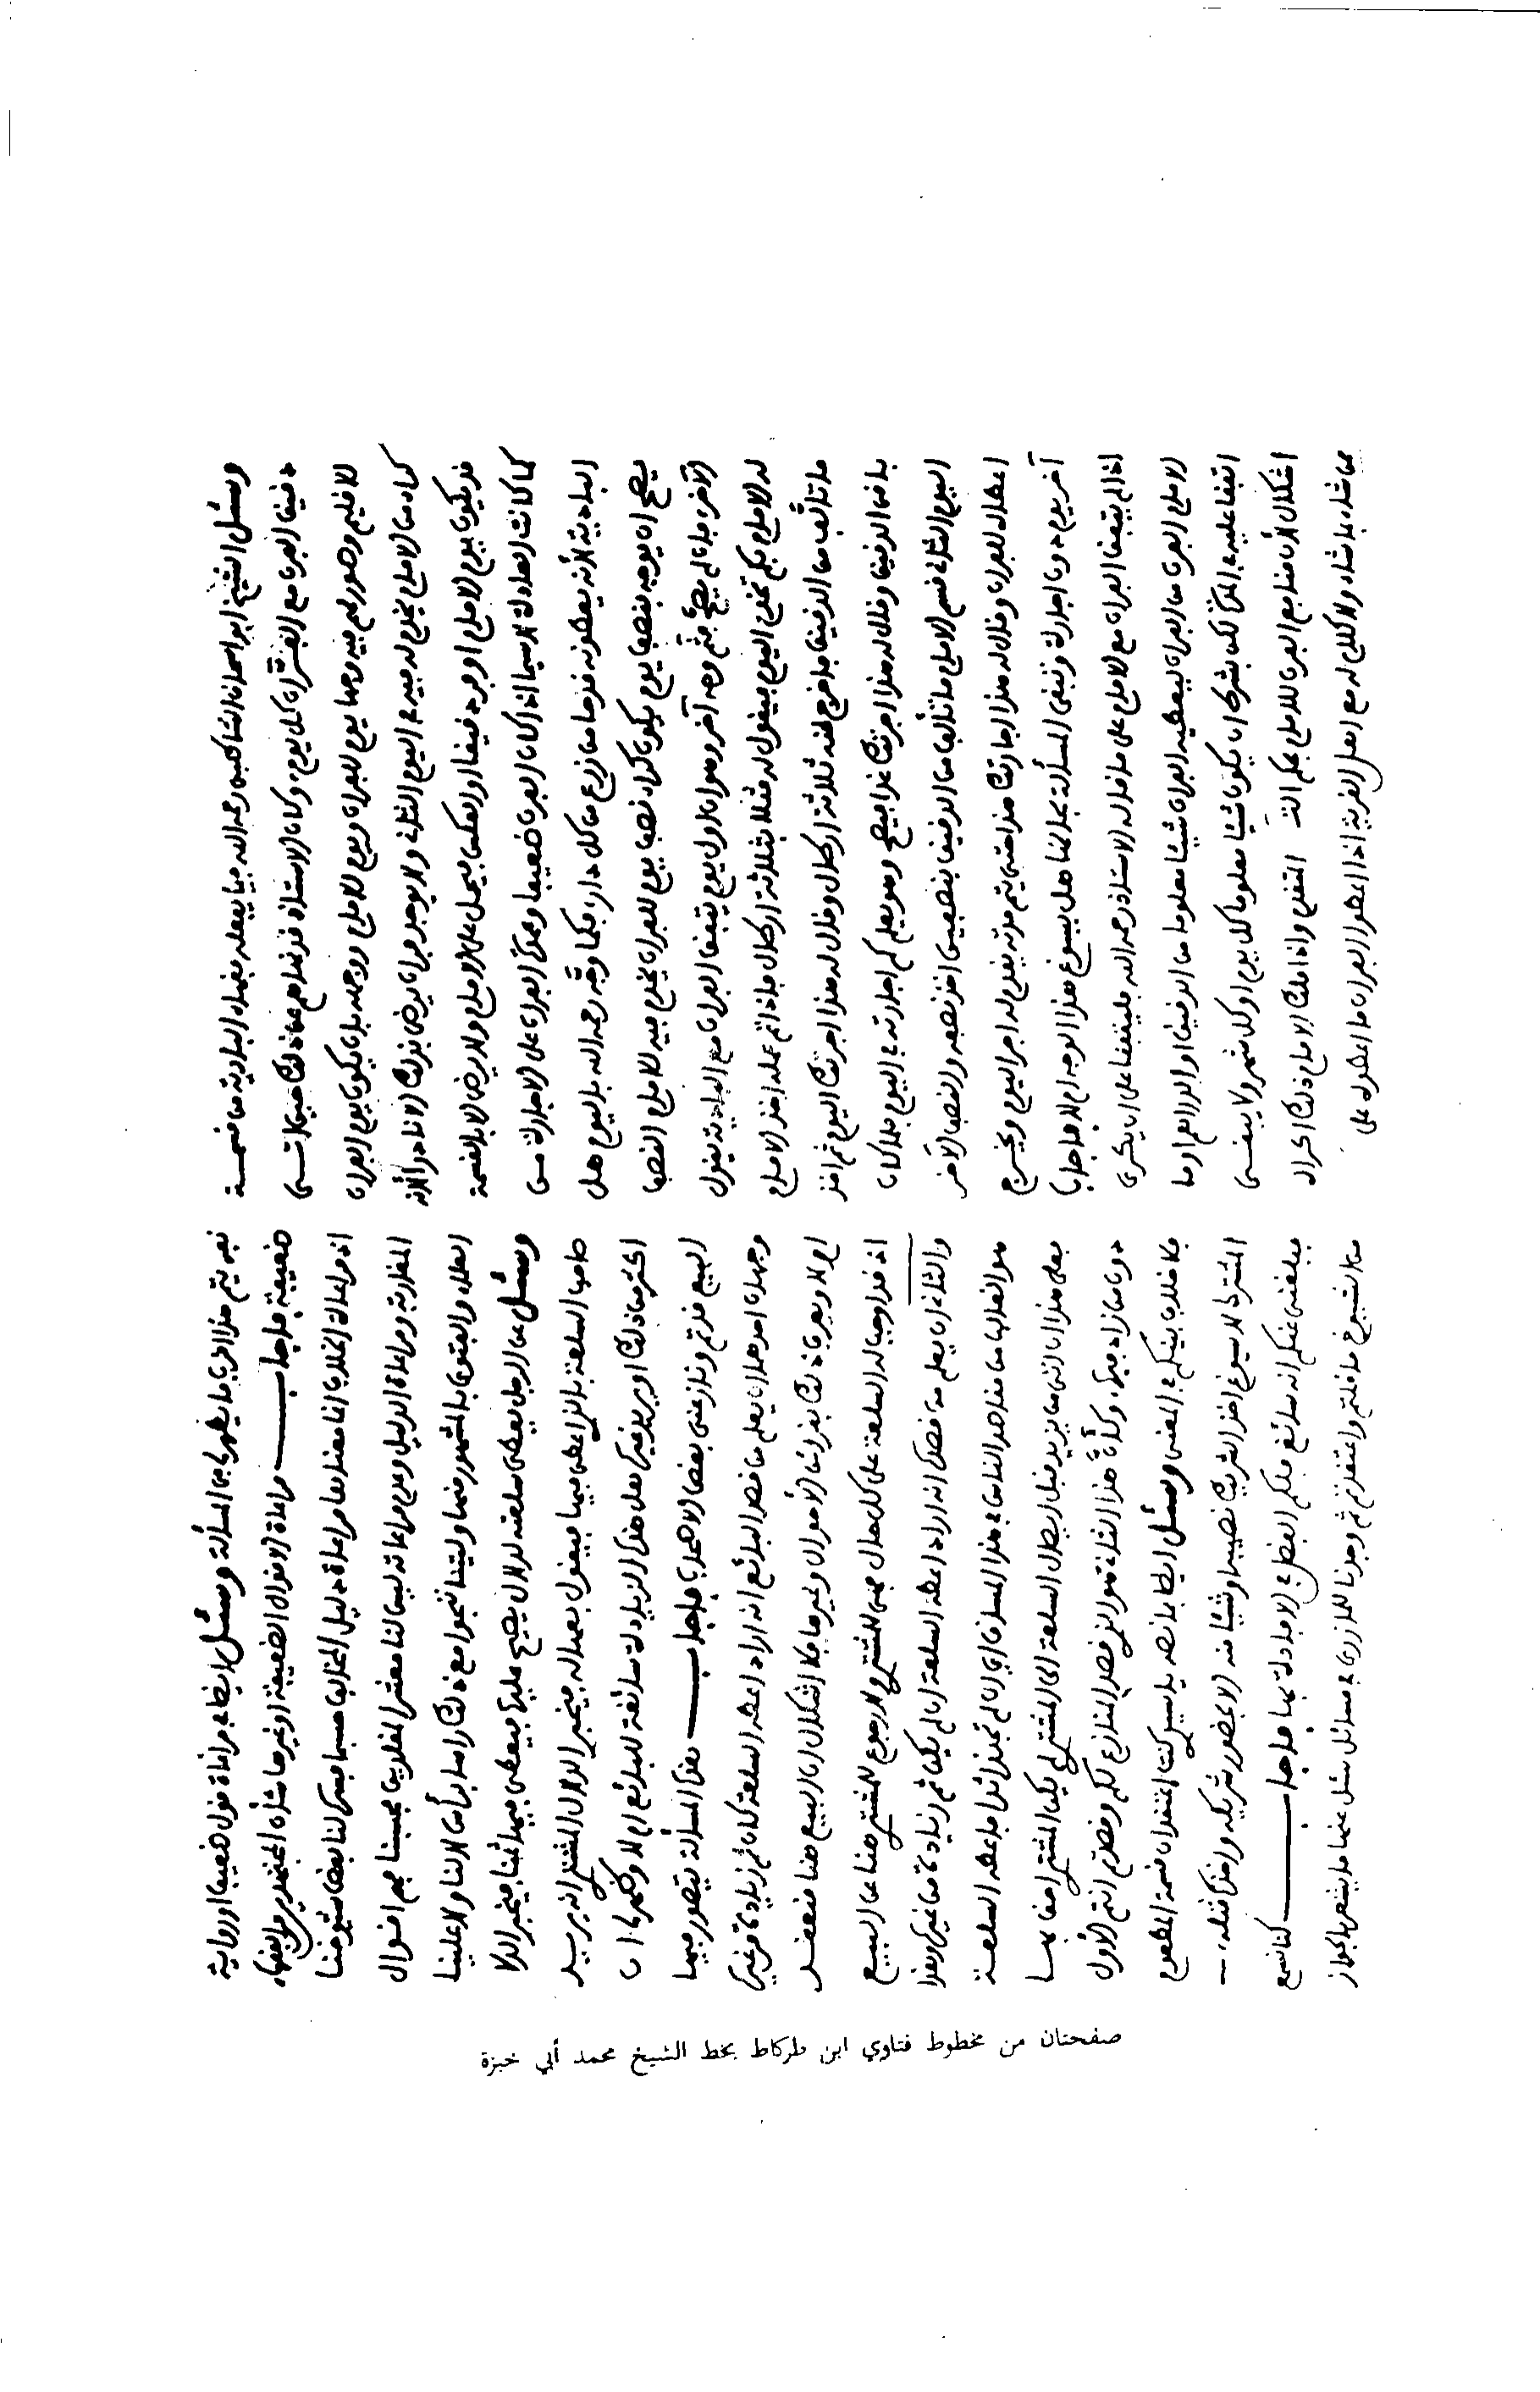 وسئل الشيخ ابو اسحاق الشاطبي رحمه الله فيما يفعله البادية من قسمة
دقيق الفرن مع الفران كل يوم، وكان الاستاذ قد نهاهم عن ذلك حين اتى
وصور لهم فيه وجها يوم للفران ويوم للامام ووجهه بان يكون يوم الفران
من الامام يخدم له فيه في اليوم الثاني ولا يوجد فران يرضى بذلك
قد يكون يوم الامام اوجد دقيقا او العكس فيحمل على الامام ولا يرضى الا بالقسمة
كما كانت العادة لا سيما اذا كان الفرن ضعيفا وعمدة الفران على الاجارة من
البادية لانه يعطونه قدحا من زرع من كل دار، فكما وجّه رحمه الله باليوم هل
يصح ان يوجه بنصف يوم فيكون كراء نصف يوم للفران يخدم فيه للامام النصف
الآخر، فان لم يصحّ فثم وجه آخر وهو ان اول يوم يتفق الفران مع البادية يقول
له الامام بكم تخدم اليوم فيقول له مثلا بثلاثة ارطال فاذا تم عمله اخذ الامام
ما تالّف من الدقيق فاخرج منه ثلاثة ارطال وقال له هذا اجرتك اليوم ثم اخذ
باقي الدقيق وقال له هذا اجرتك غدا فيصح وهو يعلم كم اجارته في اليوم فلما كان
اليوم الثاني قسم الامام ما تألف من الدقيق بنصفين اخذ نصفه والنصف الآخر
اعطاه للفران وقال له هذا اجارتك هذا حتى يتم مدته يقدم له اجر اليوم ويخرج
آخر يوم دون اجارة وتبقى المسألة بحالها هل يسوغ هذا الوجه ام لا فاجاب
اذا لم يتفق الفران مع الامام على ما قال له الاستاذ رحمه الله فليتفقا على ان يكرى
الامام الفرن من الفران فيعطيه الفران شيئا معلوما من الدقيق او الدراهم او ما
اتفقا عليه في الذمة لكن بشرط ان يكون شيئا معلوما كل يوم او كل شهر ولا يبقى
اشكال لان منافع الفرن للامام بحكم التقدم واذا ملك الامام ذلك اكراه
ممن شاء بما شاء ولا كلام له مع اهل القرية اذا اعطوا الفران ما اعطوه على
نعم يتم هذا الفرن ما يظهر لي في المسألة وسئل ايضا في مراعاة قول ضعيف او رواية
ضعيفة فاجاب مراعاة الاقوال الضعيفة او غيرها شأن المجتهدين من الفقهاء
اذ مراعاة الخلاف انما معناها مراعاة دليل المخالف حسبما فسره لنا بعض شيوخنا
المغاربة ومراعاة الدليل وعدم مراعاته ليس الينا معشر المقلدين فحسبنا فهم اقوال
العلماء والفتوى بالمشهور منها وليتنا ننجوا مع ذلك راسا برأس لا لنا ولا علينا
وسئل عن الرجل يعطي سلعته لدلال يصيح عليها فيعطي فيها ثمنا فيخبر الدلال
صاحب السلعة بالذي اعطى فيها فيقول بعها له فيخبر الدلال المشتري انه يريد
اكثر من ذلك او يريد غيره فهل هذه الزيادة سائغة للبائع ام لا وظهر لي ان
البيع قد تم ونازعني بعض الاصحاب فاجاب هذه المسألة يتصور فيها
وجهان احدهما ان يعلم من قصد البائع انه اراد اعطاء السلعة كان ثم زيادة من غيره
ام لا ويعرف ذلك بقرائن الاحوال وغيرها فلا اشكال ان البيع هنا منعقد
اذ قد اوجب له السلعة على كل حال فمن للمشتري ولا رجوع للمشتري هنا عن البيع
والثاني ان يعلم من قصده انه اراد اعطاء السلعة ان لم يكن ثم زيادة من غيره وهذا
هو الغالب من مقاصد الناس في هذا المساق اي ان لم تجد زائدا فاعطه السلعة
فعلى هذا ان اتى من يزيد قبل ايصال السلعة الى المشتري لم يكن المشتري احق بها
دون من زاد فيها، وكأن هذا الثاني هو الذي قصد المنازع لكم وقصدتم انتم الاول
فلا خلاف بينكم في المعنى وسئل ايضا بما نصه يا سيدي كنت اعتقد ان قسمة الطعام
المشترك لا يسوغ اخذ الشريك نصيبه او شيئا منه الا بحضور شريكه واخذه مثله،،
فبلغني عنكم انه سائغ فلكم الفضل في الافادة بها فاجاب كنا نسمع
من الشيوخ ما قلتم واعتقدتم ثم وجدنا للمازري في مسائل سئل عنها ما يشعر بالجواز
صفحتان من مخطوط فتاوي ابن طركاط بخط الشيخ محمد أبي خبزة